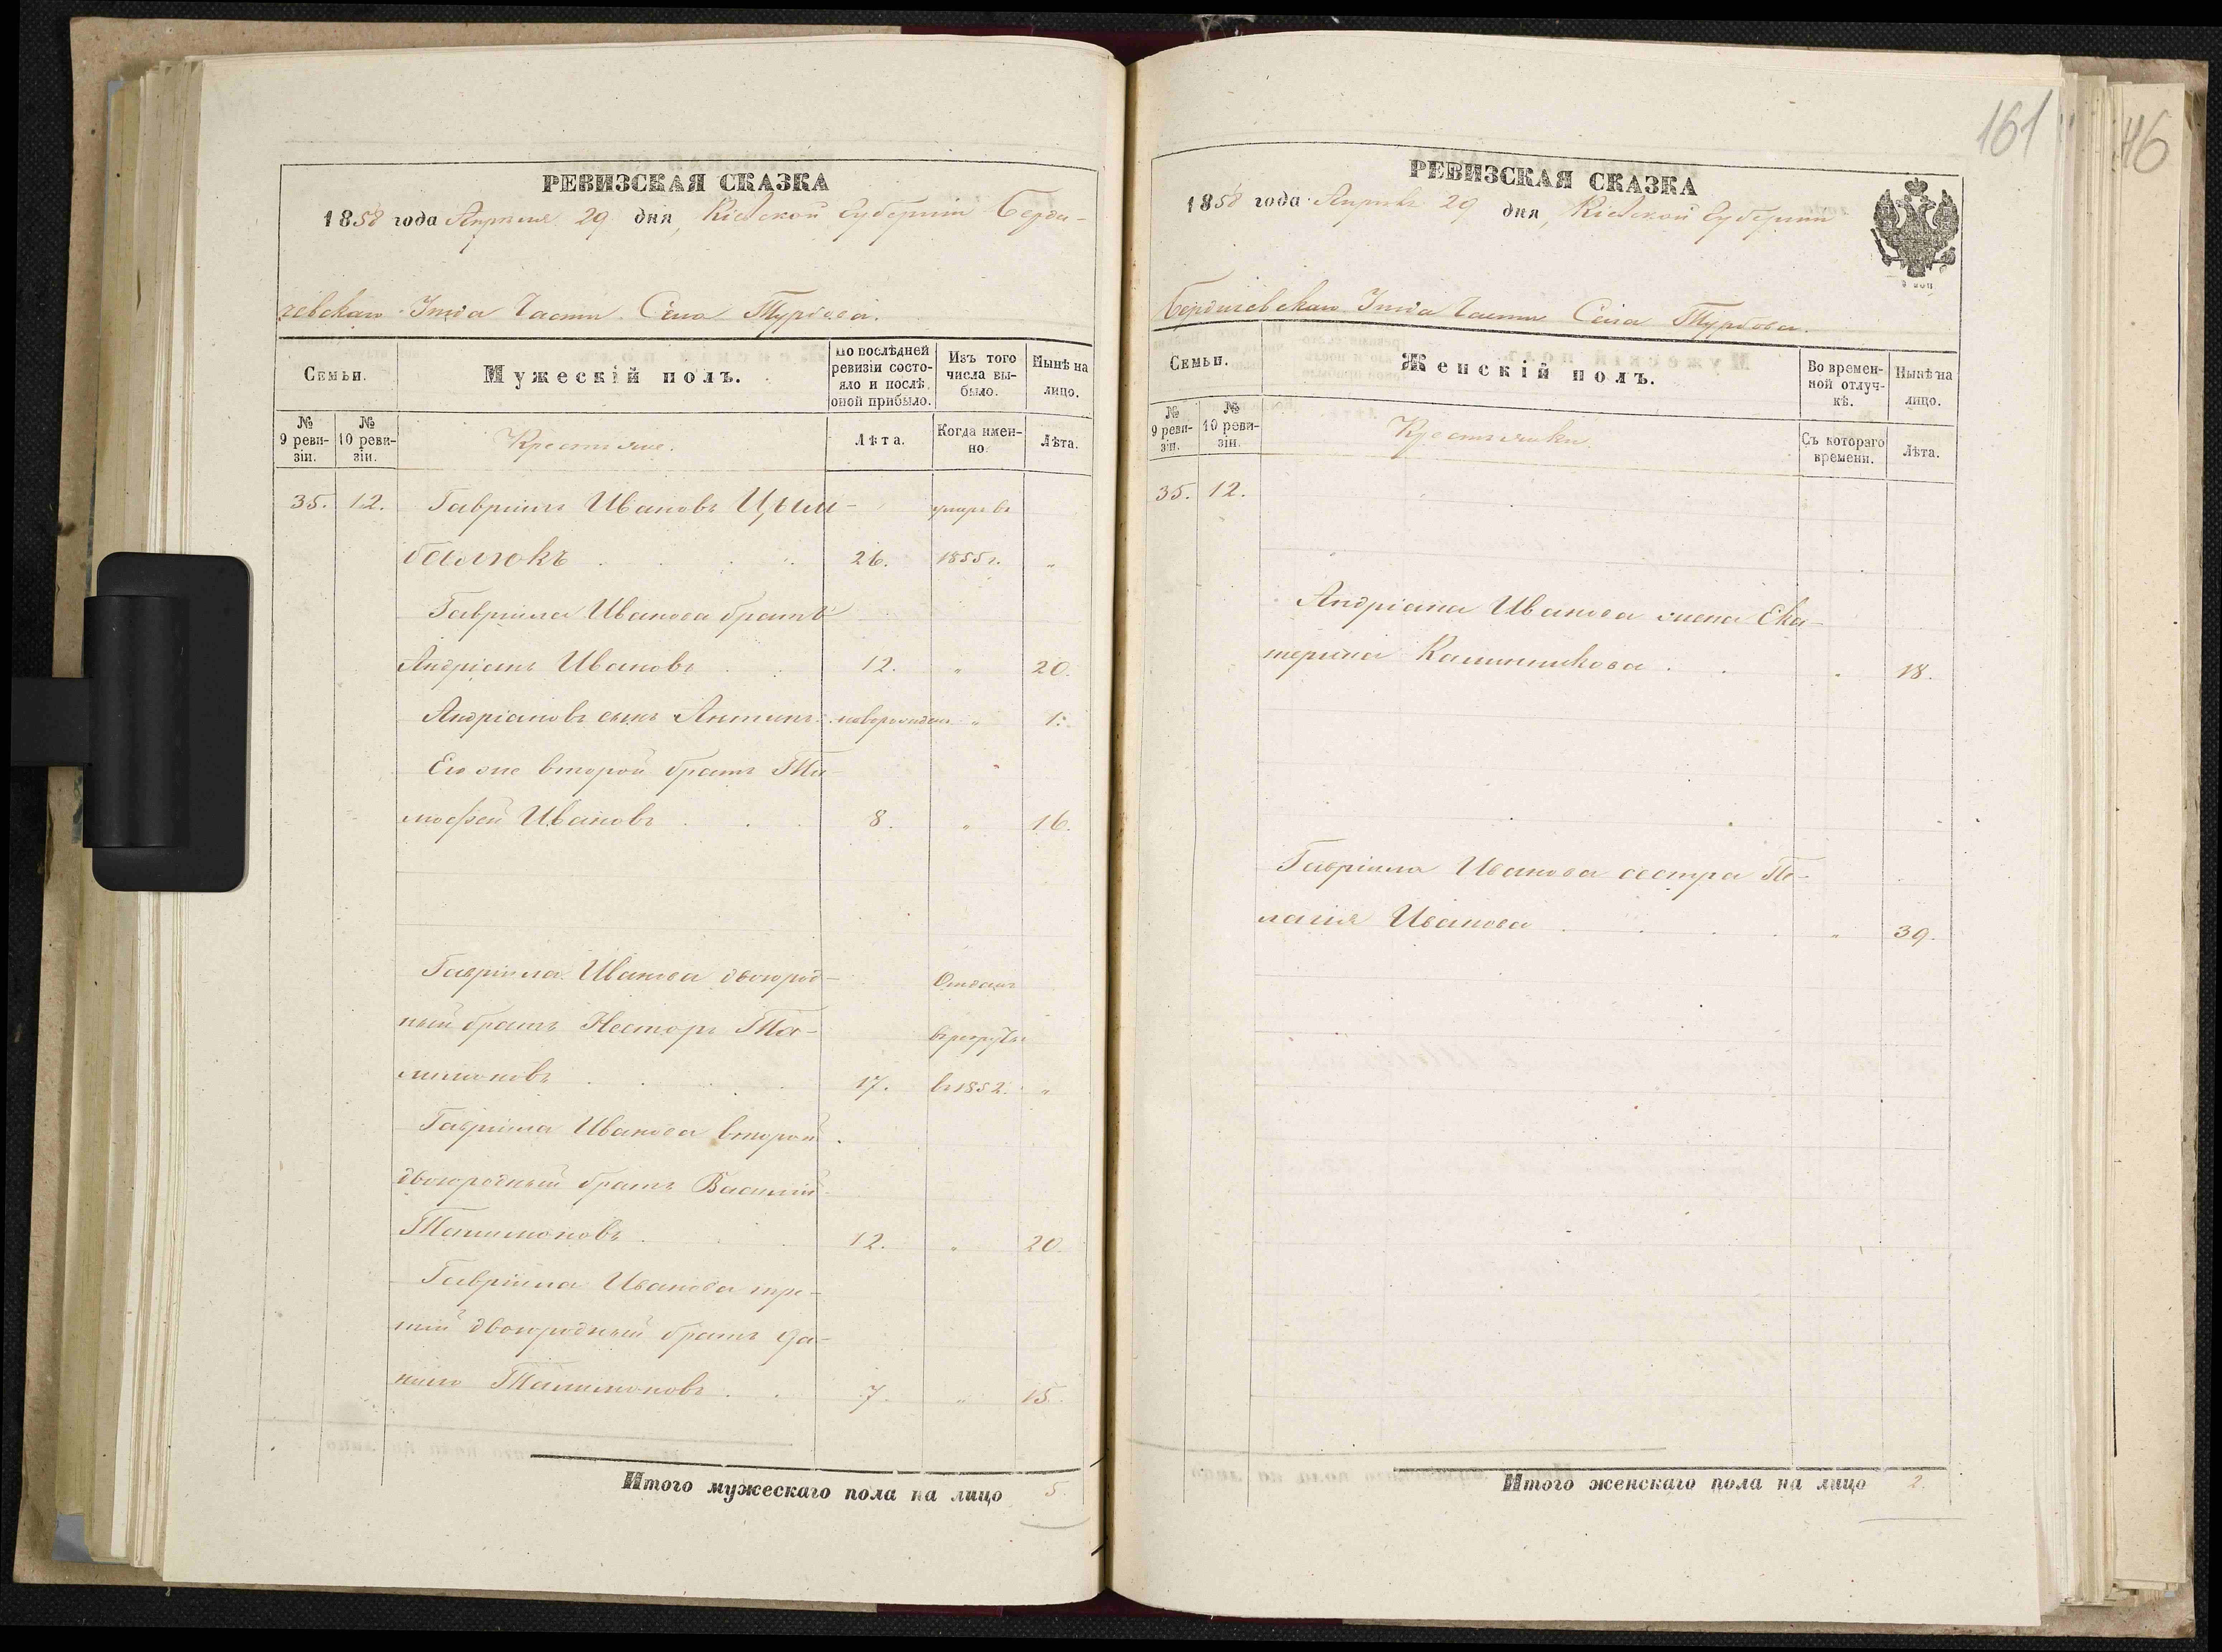 161
46
РЕВИЗСКАЯ СКАЗКА
1858 года Апреля 29 дня, Кіевской Губерніи Берди-
чевскаго Уѣзда Части Села Турбова.
Семьи.
Мужескій полъ.
По послѣдней ревизіи состояло и послѣ оной прибыло.
Изъ того числа выбыло.
Нынѣ на лицо.
№ 9 ревизіи.
№ 10 ревизіи.
Крестьяне.
Лѣта.
Когда именно.
Лѣта.
35. 12. Гавріилъ Ивановъ Цым- умеръ въ
балюкъ 26. 1855 г. "
Гавріила Иванова братъ
Андріанъ Ивановъ 12. " 20.
Андріановъ сынъ Антипъ новорожден " 1.
Его же второй братъ Ти-
мофей Ивановъ 8. " 16.
Гавріила Иванова двоюрод- Отданъ
ный братъ Несторъ в рекруты
17. въ 1852. "
Гавріила Иванова второй
двоюродный братъ Василій
12. " 20.
Гавріила Иванова тре-
тій двоюродный братъ Да-
нило 7. " 15.
Итого мужескаго пола на лицо 5.
РЕВИЗСКАЯ СКАЗКА
1858 года Апреля 29 дня, Кіевской Губерніи
Бердичевскаго Уѣзда Части Села Турбова.
Семьи.
Женскій полъ.
Во временной отлучкѣ.
Нынѣ на лицо.
№ 9 ревизіи.
№ 10 ревизіи.
Крестьянки.
Съ котораго времени.
Лѣта.
35. 12.
Андріана Иванова жена Ека-
терина Калиникова " 18.
Гавріила Иванова сестра Пе-
лагія Иванова " 39.
Итого женскаго пола на лицо 2.